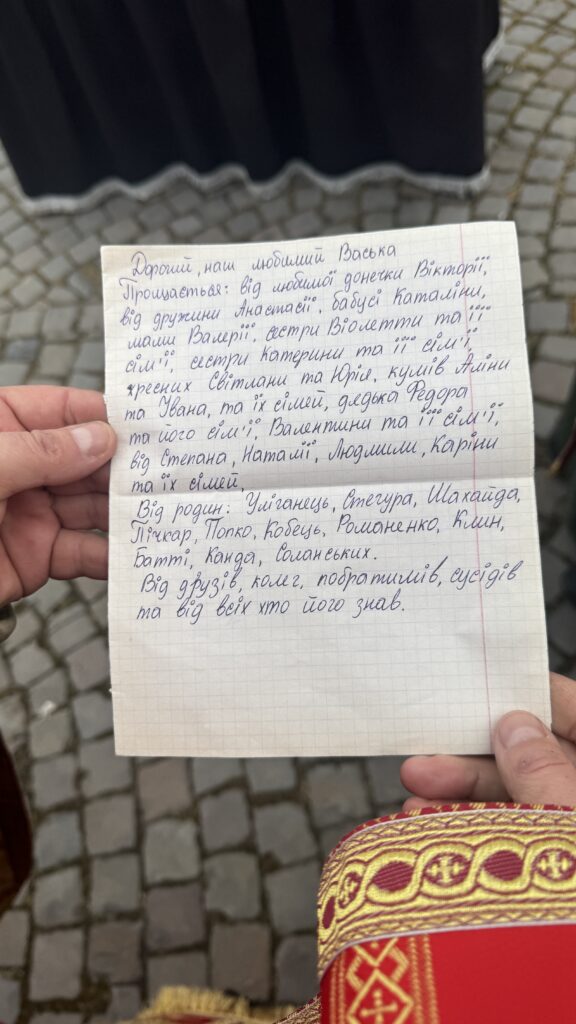 Дорогий, наш любимий Васька
Прощається: від любимої донечки Вікторії,
від дружини Анастасії, бабусі Каталіни,
мами Валерії, сестри Віолетти та її
сім'ї, сестри Катерини та її сім'ї,
хресних Світлани та Юрія, кумів Аліни
та Івана, та їх сімей, дядька Федора
та його сім'ї, Валентини та її сім'ї,
від Степана, Наталії, Людмили, Каріни
та їх сімей,
Від родин: Уліганець, Стегура, Шахайда,
Пічкар, Попко, Кобець, Романенко, Клин,
Батті, Канда, Соланських.
Від друзів, колег, побратимів, сусідів
та від всіх хто його знав.